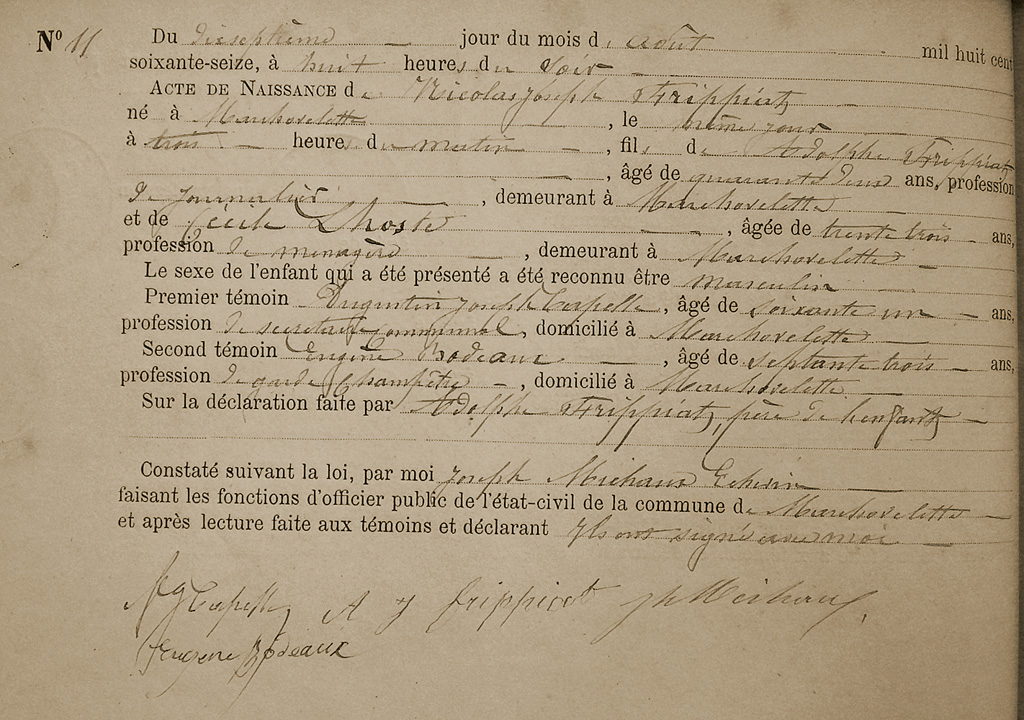 N° 11 Du dixseptième jour du mois d'août mil huit cent
soixante-seize, à huit heures du soir
ACTE DE NAISSANCE de Nicolas Joseph Frippiat
né à Marchovelette, le même jour
à trois heures du matin, fils de Adolphe Frippiat
, âgé de quarante deux ans, profession
de journalier, demeurant à Marchovelette
et de Cécile Lhoste, âgée de trente trois ans,
profession de menagère, demeurant à Marchovelette
Le sexe de l'enfant qui a été présenté a été reconnu être masculin
Premier témoin Augustin Joseph Capelle, âgé de soixante un ans,
profession de secretaire communal, domicilié à Marchovelette
Second témoin Eugène Bodeaux, âgé de septante trois ans,
profession de garde champêtre, domicilié à Marchovelette
Sur la déclaration faite par Adolphe Frippiat, père de l'enfant
Constaté suivant la loi, par moi Joseph Michaux Echevin
faisant les fonctions d'officier public de l'état-civil de la commune de Marchovelette
et après lecture faite aux témoins et déclarant Ils ont signé avec moi
A J Capelle A J frippiat Jh Michaux
Eugene Bodeaux